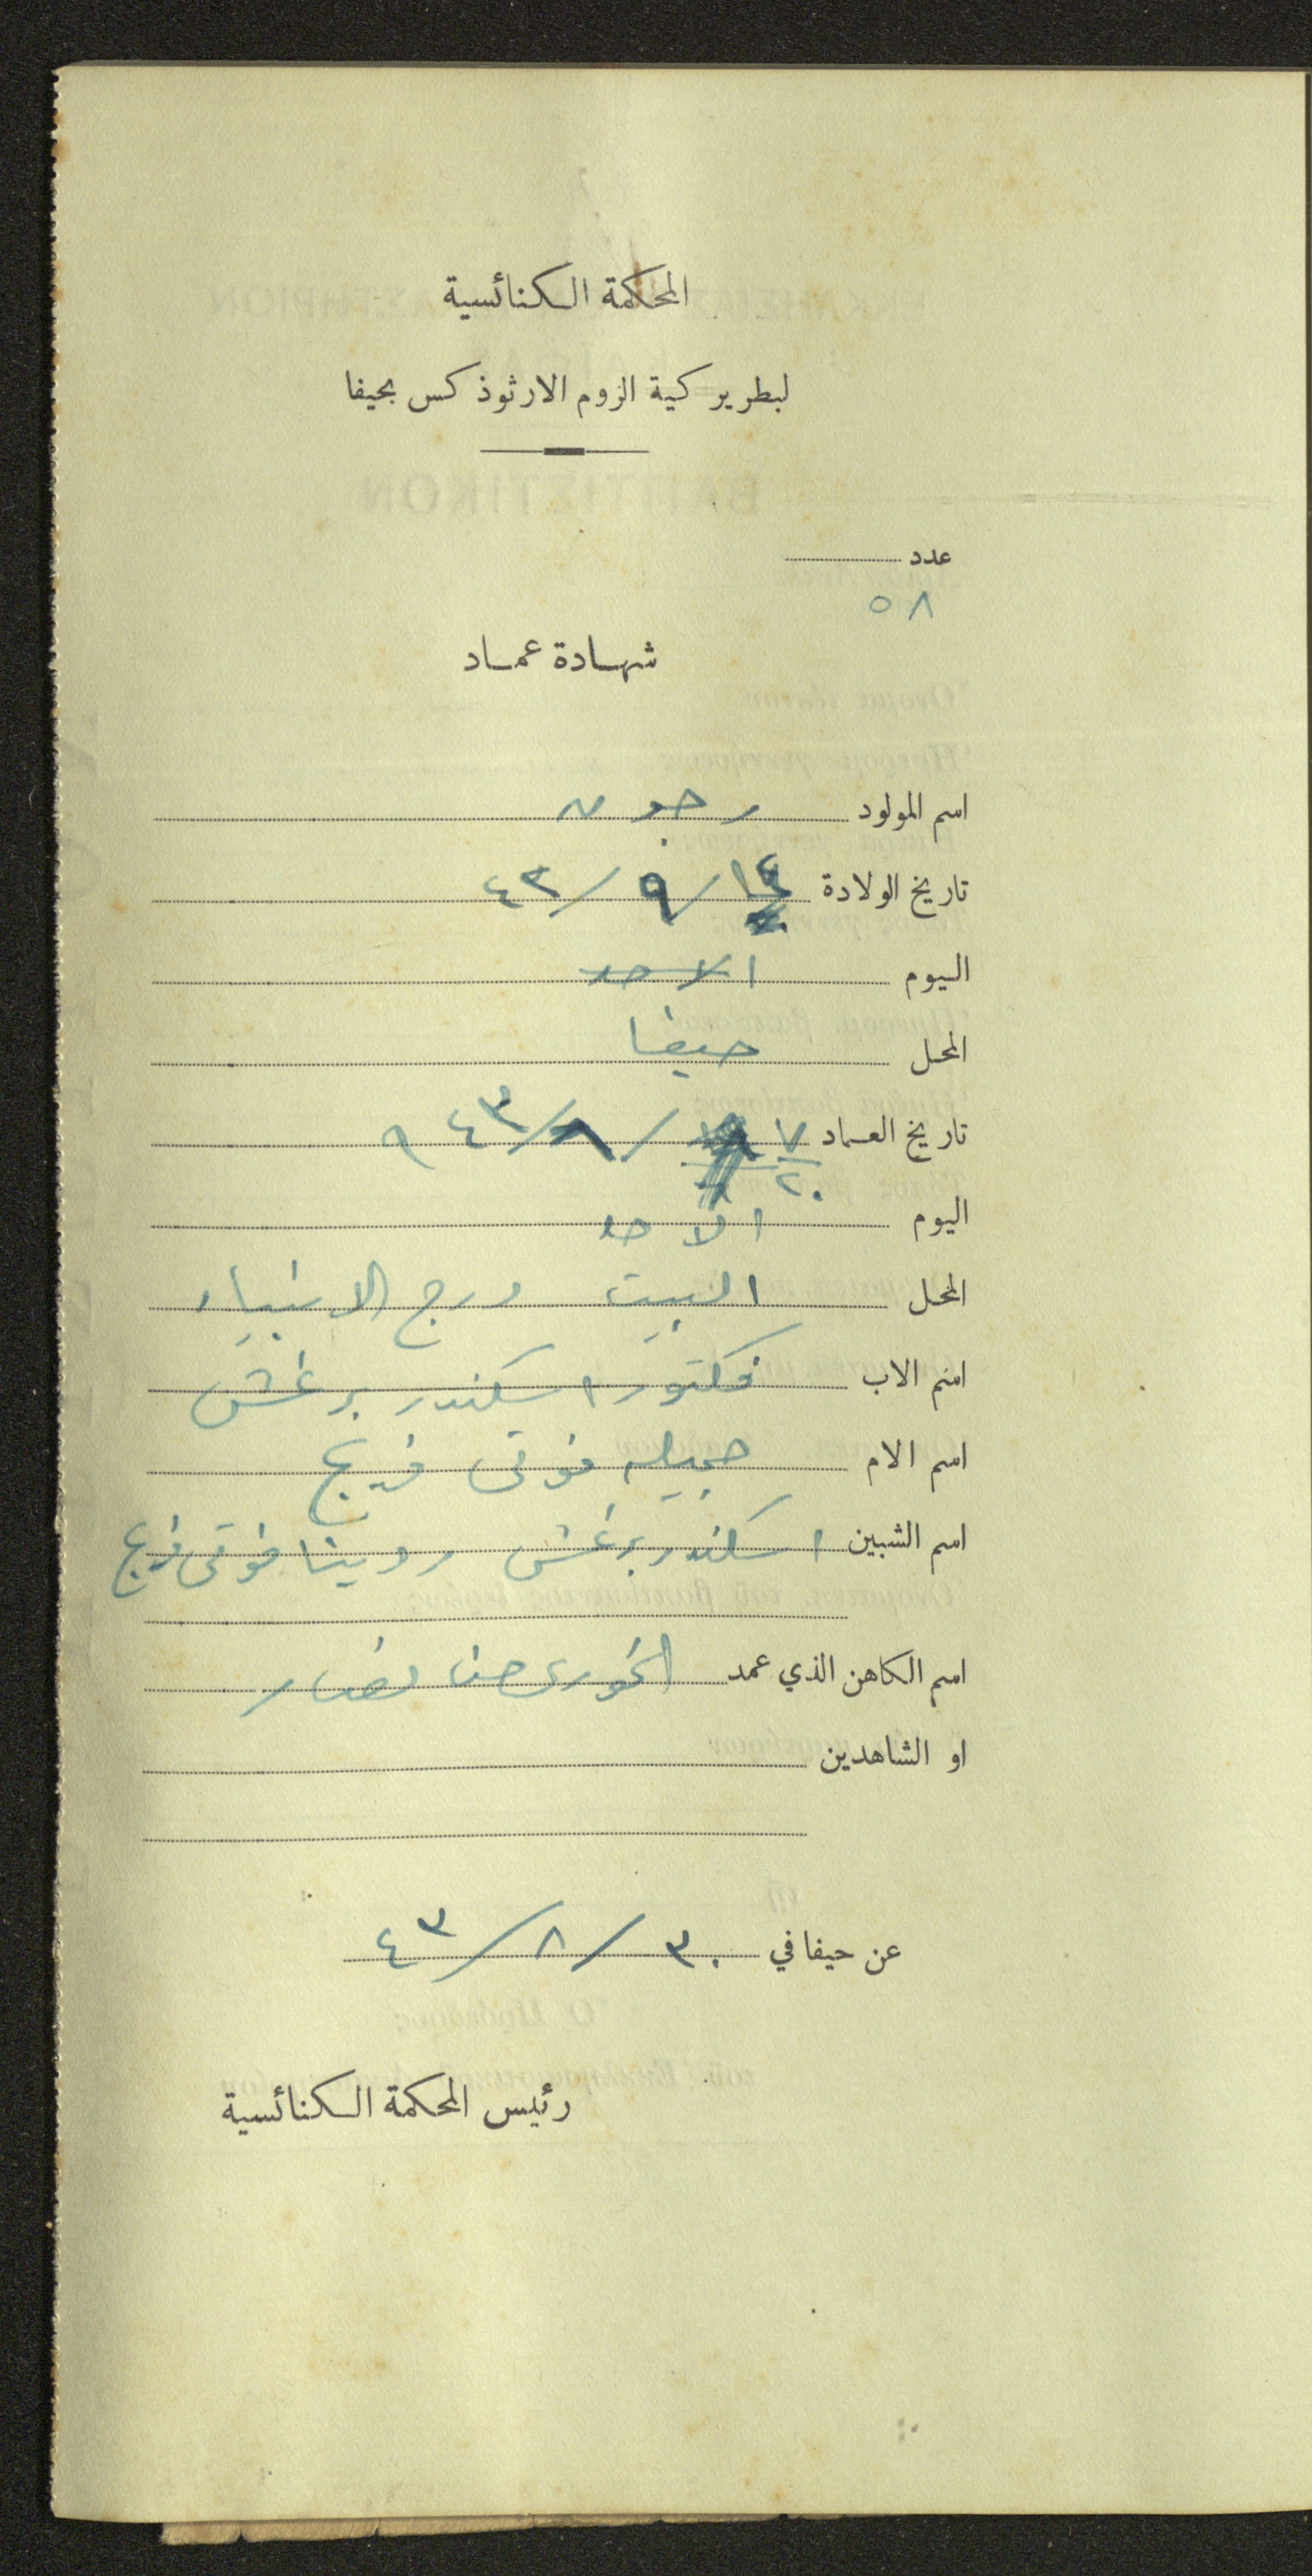 المحكمة الكنائسية
لبطريركية الروم الارثوذكس بحيفا
عدد
٥٨
شهادة عماد
اسم المولود
تاريخ الولادة ١٤/٩/٤٢
اليوم الاحد
المحل حيفا
تاريخ العماد ٧ /٨/٩٤٣
٢٠
اليوم الاحد
المحل البيت درج الانبياء
اسم الاب فكتور اسكندر برغش
اسم الام جميله فوتي فرح
اسم الشبين اسكندر برغش فوتي فرح
اسم الكاهن الذي عمد الخوري حنا نصار
او الشاهدين
عن حيفا في ٣٠/٨/٤٣
رئيس المحكمة الكنائسية